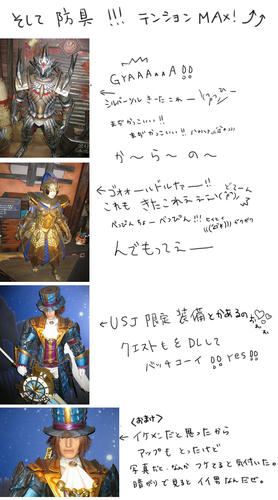 そして 防具 !!! テンション MAX! ↑↑
GYAAAxxA!!
← シルバーソル きーた これー
まぢかっこいい!!
まぢかっこいい!!
か〜ら〜の〜
← ゴォォールドルナァー!!
これも きたこれぇぇぇい
んでもってぇー
← USJ 限定 装備とかあるのぉ
クエストもをDLして
バッチコーイ!! yes!!
<おまけ>
← イケメンだと思ったから
アップも とったけど
写真だと、なんか フケてると気付いた。
暗がりで見ると イイ男なんだぜ。